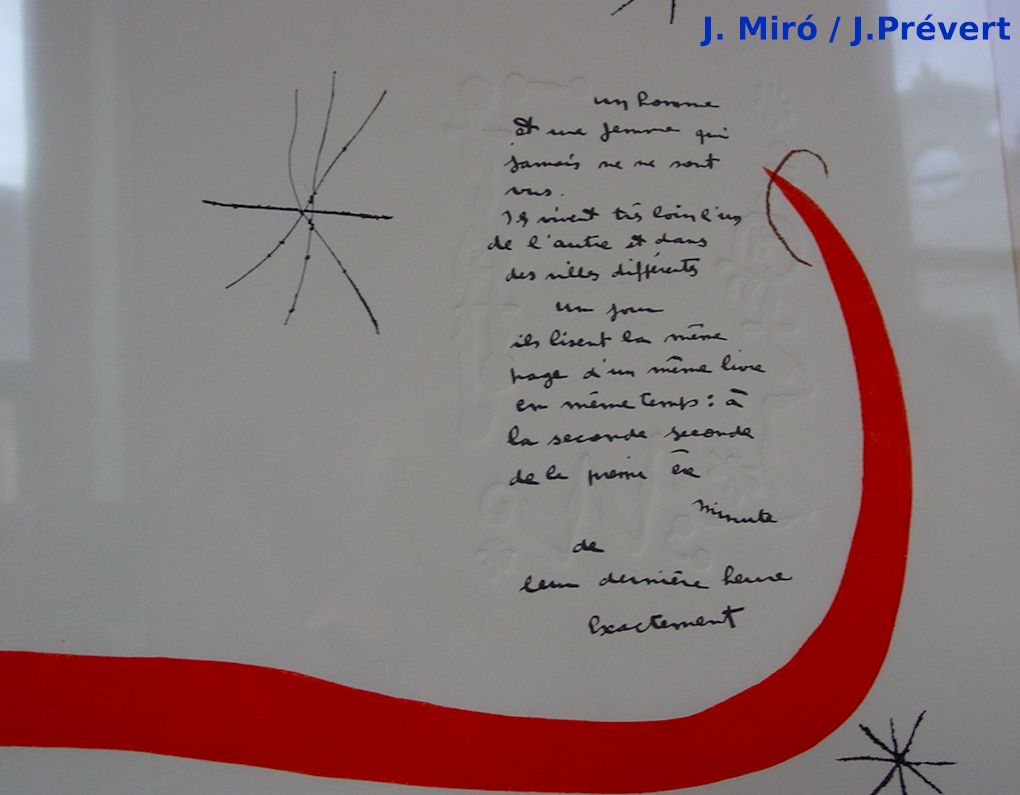 J. Miró / J.Prévert
un homme
et une femme qui
jamais ne se sont
vus.
Ils vivent très loin l'un
de l'autre et dans
des villes différentes
un jour
ils lisent la même
page d'un même livre
en même temps : à
la seconde seconde
de la premi ère
minute
de
leur dernière heure
exactement